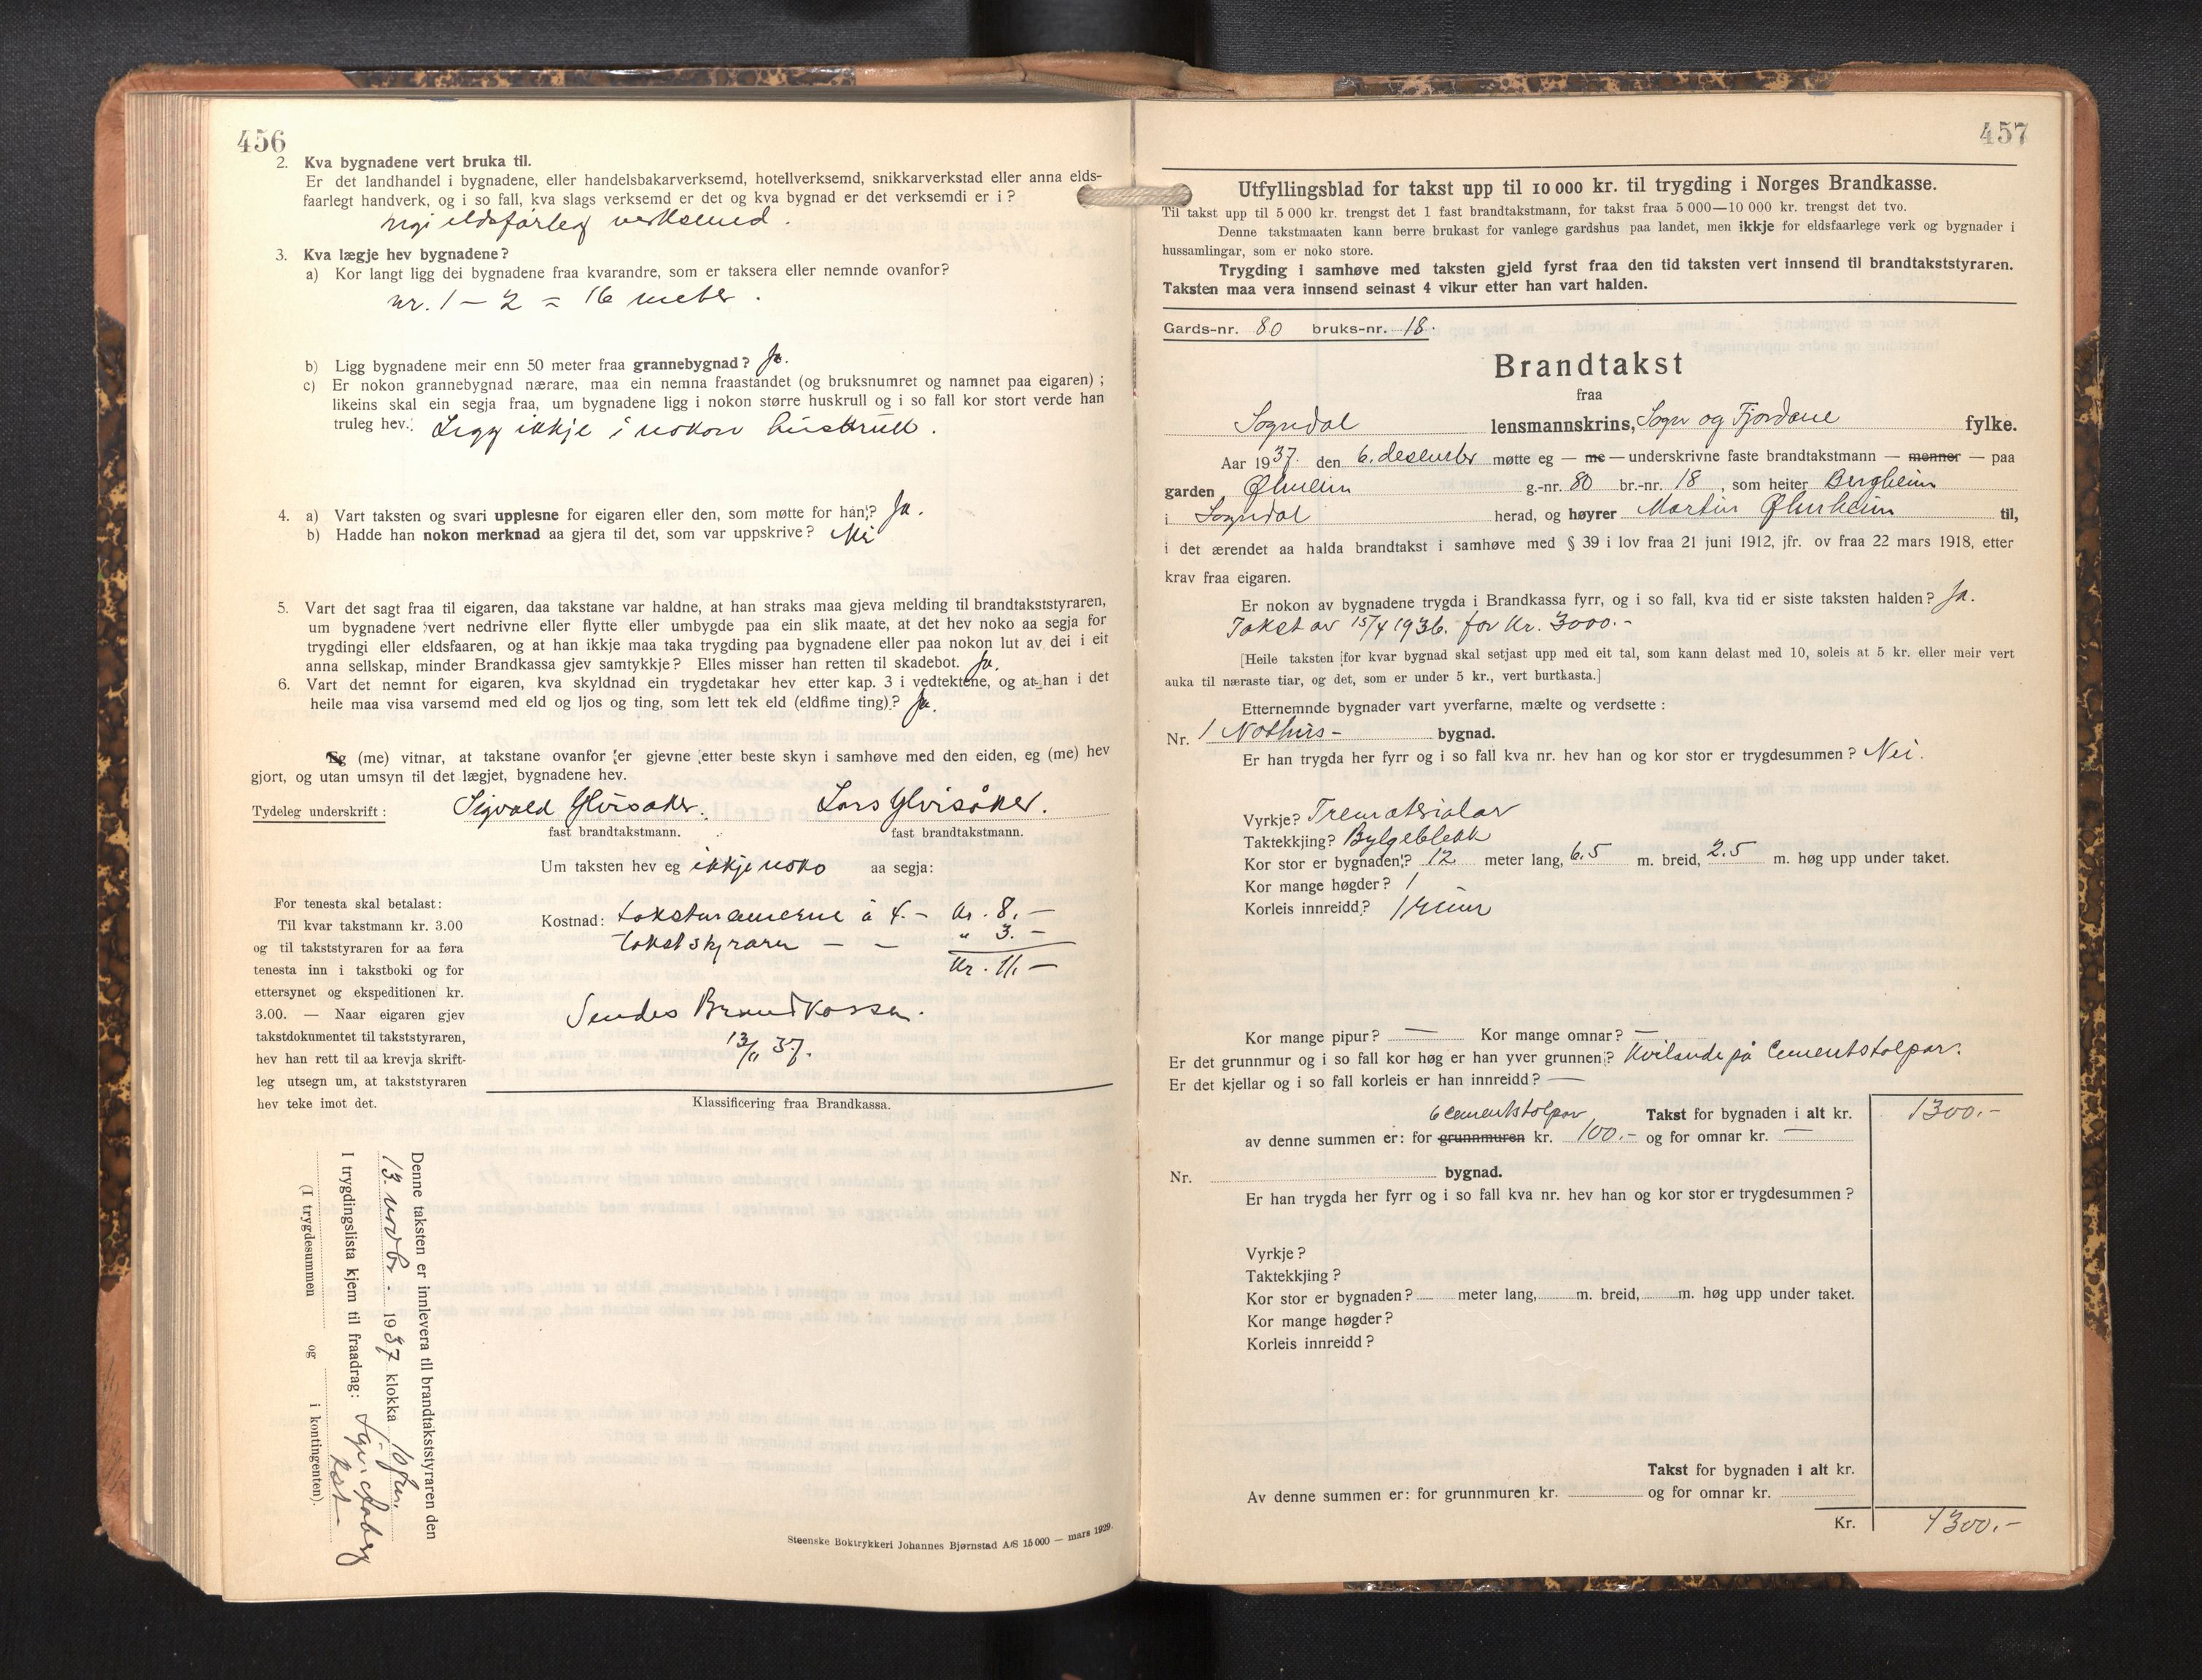 456
2. Kva bygnadene vert bruka til.
Er det landhandel i bygnadene, eller handelsbakarverksemd, hotellverksemd, snikkarverkstad eller anna elds-
faarlegt handverk, og i so fall, kva slags verksemd er det og kva bygnad er det verksemdi er i?
Ingi eldsfårleg verksemd.
3. Kva lægje hev bygnadene?
a) Kor langt ligg dei bygnadene fraa kvarandre, som er taksera eller nemnde ovanfor?
nr. 1 – 2 = 16 meter.
b) Ligg bygnadene meir enn 50 meter fraa grannebygnad? Ja.
c) Er nokon grannebygnad nærare, maa ein nemna fraastandet (og bruksnumret og namnet paa eigaren);
likeins skal ein segja fraa, um bygnadene ligg i nokon større huskrull og i so fall kor stort verde han
truleg hev. Ligg ikkje i nokon huskrull.
4. a) Vart taksten og svari upplesne for eigaren eller den, som møtte for han? Ja.
b) Hadde han nokon merknad aa gjera til det, som var uppskrive? Nei
5. Vart det sagt fraa til eigaren, daa takstane var haldne, at han straks maa gjeva melding til brandtakststyraren,
um bygnadene vert nedrivne eller flytte eller umbygde paa ein slik maate, at det hev noko aa segja for
trygdingi eller eldsfaaren, og at han ikkje maa taka trygding paa bygnadene eller paa nokon lut av dei i eit
anna sellskap, minder Brandkassa gjev samtykkje? Elles misser han retten til skadebot. Ja.
6. Vart det nemnt for eigaren, kva skyldnad ein trygdetakar hev etter kap. 3 i vedtektene, og at han i det
heile maa visa varsemd med eld og ljos og ting, som lett tek eld (eldfime ting)? Ja.
Eg (me) vitnar, at takstane ovanfor er gjevne etter beste skyn i samhøve med den eiden, eg (me) hev
gjort, og utan umsyn til det lægjet, bygnadene hev.
Tydeleg underskrift: Sigvald Glvisåker. Lars Glvisåker.
fast brandtakstmann. fast brandtakstmann.
Um taksten hev eg ikkje noko aa segja:
For tenesta skal betalast:
Til kvar takstmann kr. 3.00
og til takststyraren for aa føra
tenesta inn i takstboki og for
ettersynet og ekspeditionen kr.
3.00. — Naar eigaren gjev
takstdokumentet til takststyraren,
hev han rett til aa krevja skrift-
leg utsegn um, at takststyraren
hev teke imot det.
Kostnad: takstmennerne à 4.– Kr. 8.–
takststyraren – – " 3.–
Kr. 11.–
Sendes Brandkassen.
13/11 37.
Klassificering fraa Brandkassa.
Denne taksten er innlevera til brandtakststyraren den
13. novbr. 1937 klokka
I trygdingslista kjem til fraadrag:
(I trygdesummen og i kontingenten).
Steenske Boktrykkeri Johannes Bjørnstad A/S 15 000 — mars 1929.
457
Utfyllingsblad for takst upp til 10 000 kr. til trygding i Norges Brandkasse.
Til takst upp til 5 000 kr. trengst det 1 fast brandtakstmann, for takst fraa 5 000—10 000 kr. trengst det tvo.
Denne takstmaaten kann berre brukast for vanlege gardshus paa landet, men ikkje for eldsfaarlege verk og bygnader i
hussamlingar, som er noko store.
Trygding i samhøve med taksten gjeld fyrst fraa den tid taksten vert innsend til brandtakststyraren.
Taksten maa vera innsend seinast 4 vikur etter han vart halden.
Gards-nr. 80 bruks-nr. 18.
Brandtakst
fraa
Sogndal lensmannskrins, Sogn og Fjordane fylke.
Aar 1937. den 6. desember møtte eg — me — underskrivne faste brandtakstmann — menner — paa
garden Ølmheim g.-nr. 80 br.-nr. 18, som heiter Bergheim
i Sogndal herad, og høyrer Martin Ølmheim til,
i det ærendet aa halda brandtakst i samhøve med § 39 i lov fraa 21 juni 1912, jfr. ov fraa 22 mars 1918, etter
krav fraa eigaren.
Er nokon av bygnadene trygda i Brandkassa fyrr, og i so fall, kva tid er siste taksten halden? Ja.
Takst av 15/4 1936. for Kr. 3000.–
[Heile taksten for kvar bygnad skal setjast upp med eit tal, som kann delast med 10, soleis at 5 kr. eller meir vert
auka til næraste tiar, og det, som er under 5 kr., vert burtkasta.]
Etternemnde bygnader vart yverfarne, mælte og verdsette:
Nr. 1 Nothus – bygnad.
Er han trygda her fyrr og i so fall kva nr. hev han og kor stor er trygdesummen? Nei.
Vyrkje? Trematerialar
Taktekkjing? Bylgeblekk
Kor stor er bygnaden? 12 meter lang, 6.5 m. breid, 2.5 m. høg upp under taket.
Kor mange høgder? 1
Korleis innreidd? 1 rum
Kor mange pipur? — Kor mange omnar? —
Er det grunnmur og i so fall kor høg er han yver grunnen? Kvilande på Cementstolpar.
Er det kjellar og i so fall korleis er han innreidd? —
6 cementstolpar Takst for bygnaden i alt kr. 1300.–
av denne summen er: for grunnmuren kr. 100.– og for omnar kr. —
Nr. bygnad.
Er han trygda her fyrr og i so fall kva nr. hev han og kor stor er trygdesummen?
Vyrkje?
Taktekkjing?
Kor stor er bygnaden? meter lang, m. breid, m. høg upp under taket.
Kor mange høgder?
Korleis innreidd?
Takst for bygnaden i alt kr.
Av denne summen er: for grunnmuren kr. og for omnar kr.
Kr. 1300.–